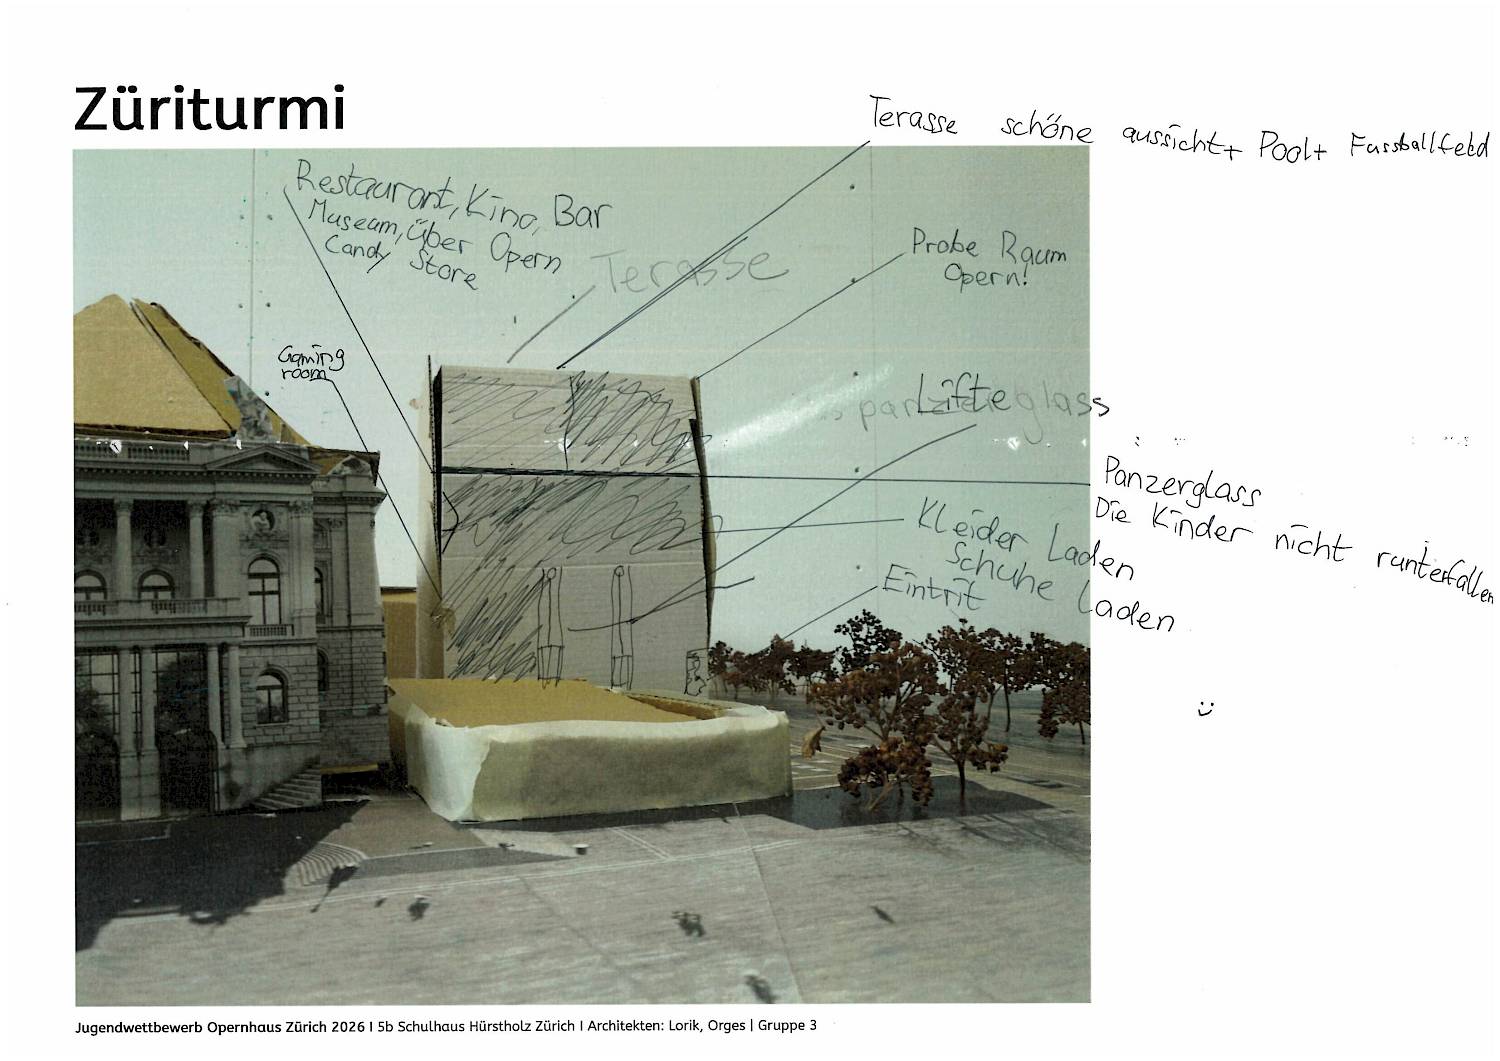 Züriturmi
Terasse schöne aussicht+ Pool+ Fussballfeld
Restaurant, Kino, Bar
Museam, über Opern
Candy Store
Terasse
Probe Raum
Opern!
Gaming
room
Lifte
glass
Panzerglass
Die Kinder nicht runterfallen
Kleider Laden
Schuhe Laden
Eintrit
Jugendwettbewerb Opernhaus Zürich 2026 I 5b Schulhaus Hürstholz Zürich I Architekten: Lorik, Orges | Gruppe 3